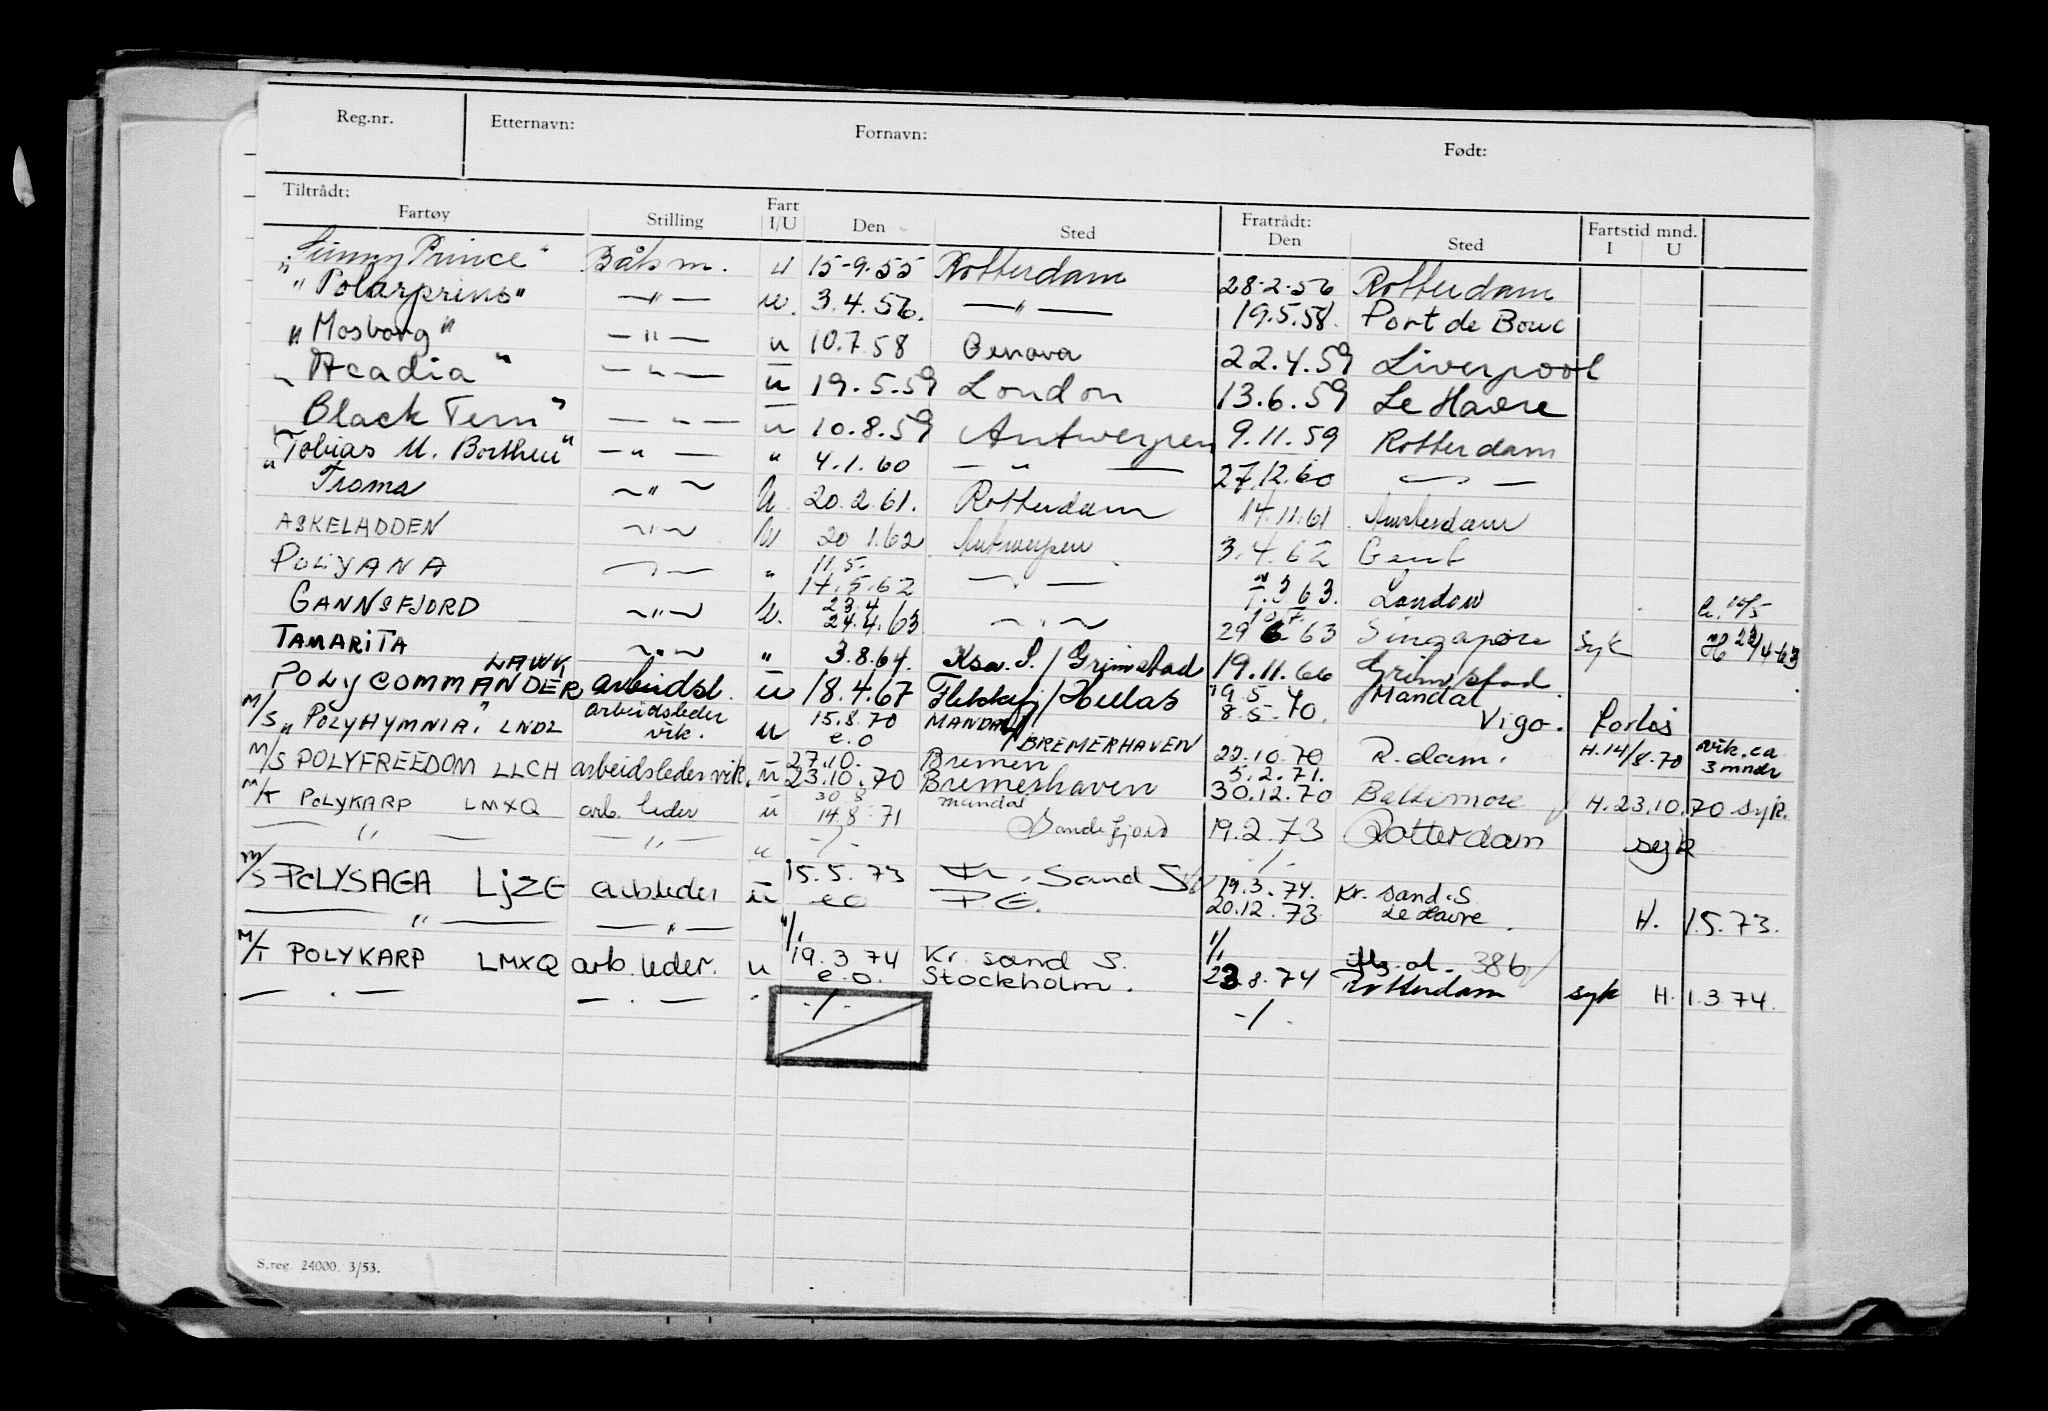 Reg.nr. Etternavn: Fornavn: Født:
Tiltrådt: Fratrådt:
Fartøy Stilling Fart I/U Den Sted Den Sted Fartstid mnd. I U
"Sunny Prince" Båtsm. u 15-9.55 Rotterdam 28-2-56 Rotterdam
"Polarprins" —"— u. 3.4.56. —"— 19.5.58. Port de Bouc
"Mosborg" —"— u 10.7.58 Genova 22.4.59 Liverpool
"Acadia" —"— u 19.5.59 London 13.6.59 Le Havre
"Black Tern" —"— u 10.8.59 Antwerpen 9.11.59 Rotterdam
"Tobias U. Borthen" —"— " 4.1.60 —"— 27.12.60 —"—
Troma —"— U. 20.2.61. Rotterdam 14.11.61 Amsterdam
ASKELADDEN —"— U 20 1.62 Antwerpen 3.4.62 Gent
POLYANA —"— " 11.5. 14.5.62 —"— 1.3 63. London 15/5
GANNSFJORD —"— U. 23.4 24.4.63 —"— 29 6 63 Singapore syk H 23/4-63
TAMARITA —"— " 3.8.64. Krsa. S./Grimstad 19.11.66 Grimstad
POLYCOMMANDER LAWK arbeidsl. u 18.4.67 Flekkefj/Hellas 19.5 8.5.70. Mandal Vigo. forlis
M/S "POLYHYMNIA" LNDL arbeidsleder vik. u 15.8.70 e.o MANDAL/BREMERHAVEN 22.10.70 R.dam. H.14/8.70 vik. ca 3 mndr
M/S POLYFREEDOM LLCH arbeidsleder vik. u 27.10. 23.10.70 Bremen Bremerhaven 5.2.71. 30.12.70 Baltimore H.23.10.70 syk.
M/T POLYKARP LMXQ arb. leder u 30 8 14 8 71 Mandal Sandefjord 19.2.73 Rotterdam syk
—"— —"— u -/- -/-
M/S POLYSAGA LJZE arb.leder u 15.5.73 e o Kr. Sand S P.E. 19.3.74. 20.12.73 Kr. sand.S Le Havre. H. 1.5.73.
—"— —"— "/, 1/,
M/T POLYKARP LMXQ arb. leder. u 19.3 74 e.o. Kr. sand S. Stockholm. 23.8.74 386 Rotterdam syk H.1.3.74.
—"— —"— " -/- -/-
S.reg. 24000. 3/53.